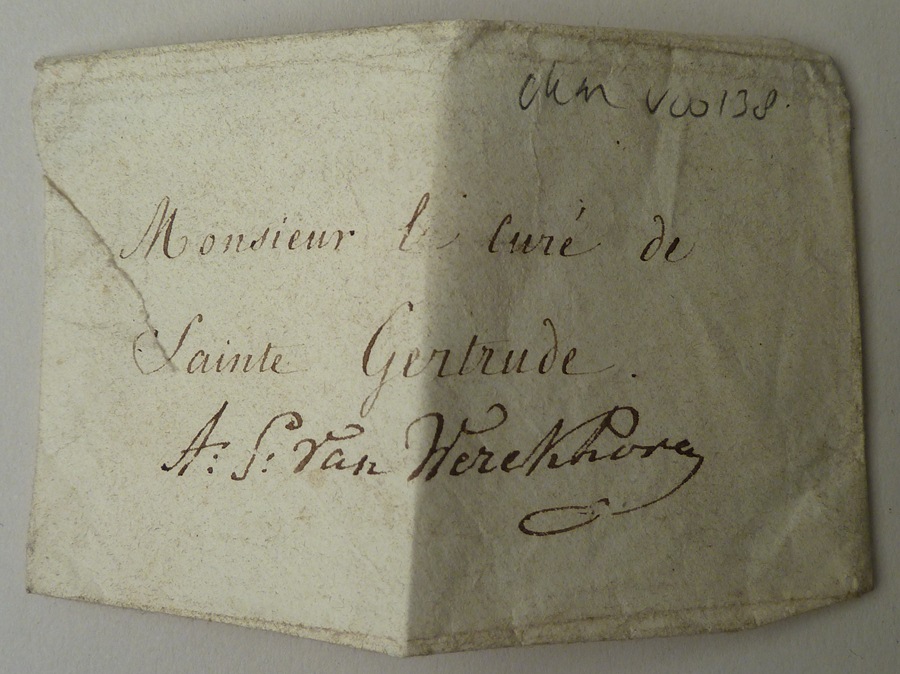 V00138.
Monsieur le Curé de
Sainte Gertrude.
A: P: Van Werckhoven